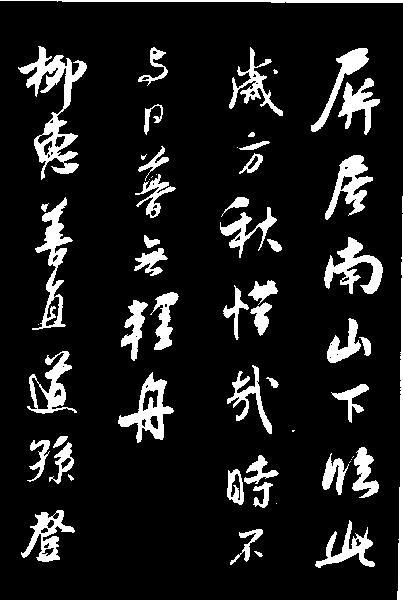 屏居南山下臨此
歲方秋惜哉時不
与日暮無輕舟
柳惠善直道孫登